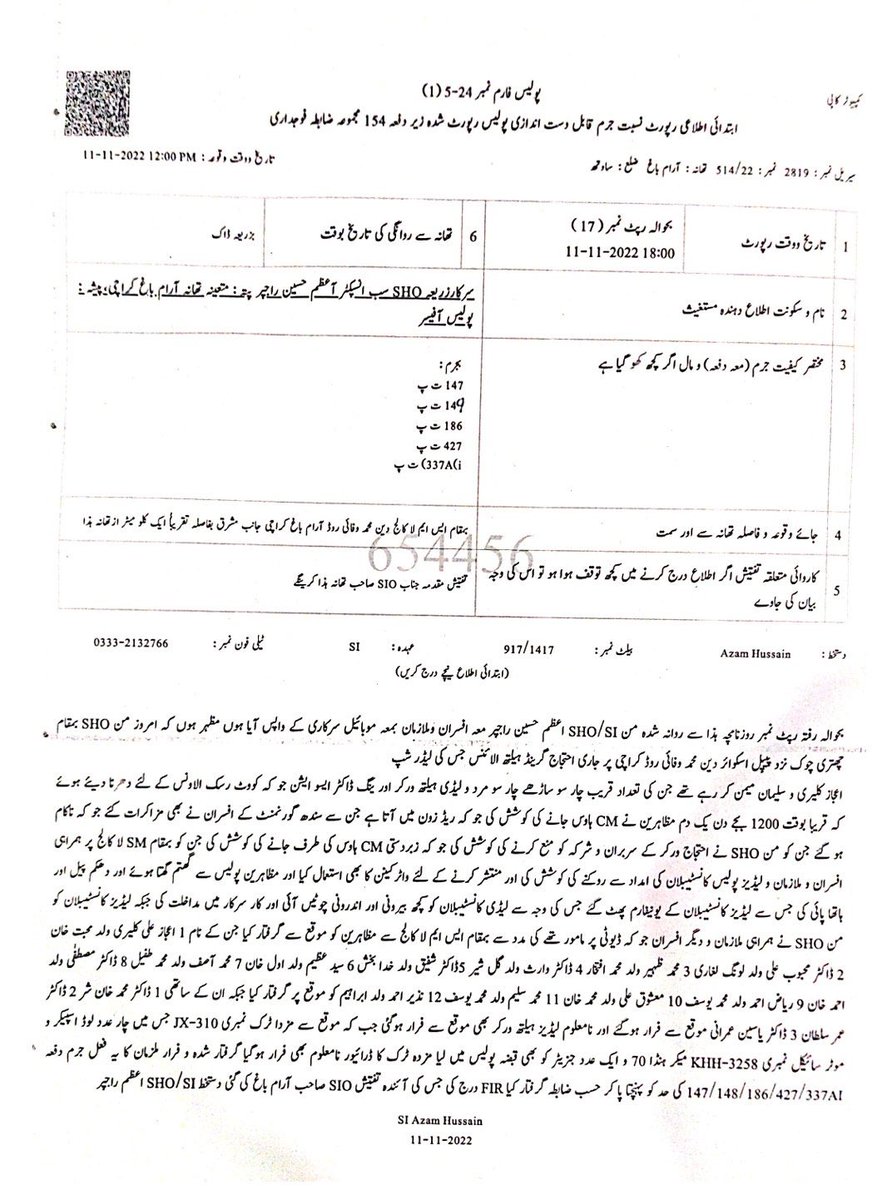 کمپیوٹر کاپی
پولیس فارم نمبر 24-5 (1)
ابتدائی اطلاعی رپورٹ نسبت جرم قابل دست اندازی پولیس رپورٹ شدہ زیر دفعہ 154 مجموعہ ضابطہ فوجداری
سیریل نمبر : 2819 نمبر : 514/22 تھانہ : آرام باغ ضلع : ساوتھ
تاریخ ووقت وقوعہ : 11-11-2022 12:00 PM
1 تاریخ ووقت رپورٹ
بحوالہ رپٹ نمبر (17)
11-11-2022 18:00
6 تھانہ سے روانگی کی تاریخ بوقت
بزریعہ ڈاک
2 نام و سکونت اطلاع دہندہ مستغیث
سرکارزریعہ SHO سب انسپکٹر آعظم حسین راجپر پتہ : متعینہ تھانہ آرام باغ کراچی، پیشہ :
پولیس آفیسر
3 مختصر کیفیت جرم (معہ دفعہ) و مال اگر کچھ کھو گیا ہے
بجرم :
147 ت پ
149 ت پ
186 ت پ
427 ت پ
337A(i) ت پ
4 جائے وقوعہ و فاصلہ تھانہ سے اور سمت
بمقام ایس ایم لا کالج دین محمد وفائی روڈ آرام باغ کراچی جانب مشرق بفاصلہ تقریباً ایک کلو میٹر ازتھانہ ہذا
654456
5 کاروائی متعلقہ تفتیش اگر اطلاع درج کرنے میں کچھ توقف ہوا ہو تو اس کی وجہ
بیان کی جاوے
تفتیش مقدمہ جناب SIO صاحب تھانہ ہذا کرینگے
دستخط : Azam Hussain بیلٹ نمبر : 917/1417 عہدہ : SI ٹیلی فون نمبر : 0333-2132766
(ابتدائی اطلاع نیچے درج کریں)
بحوالہ رفتہ رپٹ نمبر روزنامچہ ہذا سے روانہ شدہ من SHO/SI اعظم حسین راجپر معہ افسران وملازمان بمعہ موبائیل سرکاری کے واپس آیا ہوں مظہر ہوں کہ امروز من SHO بمقام
چھتری چوک نزد پیپل اسکوائر دین محمد وفائی روڈ کراچی پر جاری احتجاج گرینڈ ہیلتھ الائنس جس کی لیڈر شپ
اعجاز کلیری و سلیمان میمن کر رہے تھے جن کی تعداد قریب چار سو ساڑھے چار سو مرد و لیڈی ہیلتھ ورکر اور ینگ ڈاکٹر ایسو ایشن جو کہ کووٹ رسک الاونس کے لئے دھرنا دیئے ہوئے
کہ قریبا بوقت 1200 بجے دن یک دم مظاہرین نے CM ہاوس جانے کی کوشش کی جو کہ ریڈ زون میں آتا ہے جن سے سندھ گورنمنٹ کے افسران نے بھی مزاکرات کئے جو کہ ناکام
ہو گئے جن کو من SHO نے احتجاج ورکر کے سربراہن و شرکہ کو منع کرنے کی کوشش کی جو کہ زبردستی CM ہاوس کی طرف جانے کی کوشش کی جن کو بمقام SM لا کالج پر ہمراہی
افسران و ملازمان و لیڈیز پولیس کانسٹیبلان کی امداد سے روکنے کی کوشش کی اور منتشر کرنے کے لئے واٹر کینن کا بھی استعمال کیا اور مظاہرین پولیس سے گھتم گھتا ہوئے اور دھکم پیل اور
ہاتھا پائی کی جس سے لیڈیز کانسٹیبلان کے یونیفارم پھٹ گئے جس کی وجہ سے لیڈی کانسٹیبلان کو کچھ بیرونی اور اندرونی چوٹیں آئی اور کار سرکار میں مداخلت کی جبکہ لیڈیز کانسٹیبلان کو
من SHO نے ہمراہی ملازمان و دیگر افسران جو کہ ڈیوٹی پر مامور تھے کی مدد سے بمقام ایس ایم لا کالج سے مظاہرین کو موقع سے گرفتار کیا جن کے نام 1 اعجاز علی کلیری ولد محبت خان
2 ڈاکٹر محبوب علی ولد لونگ لغاری 3 محمد ظہیر ولد محمد افتخار 4 ڈاکٹر وارث ولد گل شیر 5 ڈاکٹر شفیق ولد خدا بخش 6 سید عظیم ولد اول خان 7 محمد آصف ولد محمد طفیل 8 ڈاکٹر مصطفی ولد
احمد خان 9 ریاض احمد ولد محمد یوسف 10 معشوق علی ولد محمد خان 11 محمد سلیم ولد محمد یوسف 12 نذیر احمد ولد ابراہیم کو موقع پر گرفتار کیا جبکہ ان کے ساتھی 1 ڈاکٹر محمد خان شر 2 ڈاکٹر
عمر سلطان 3 ڈاکٹر یاسین عمرانی موقع سے فرار ہوگئے اور نامعلوم لیڈیز ہیلتھ ورکر بھی موقع سے فرار ہوگئی جب کہ موقع سے مزدا ٹرک نمبری JX-310 جس میں چار عدد لوڈ اسپیکر و
موٹر سائیکل نمبری KHH-3258 میکر ہنڈا 70 و ایک عدد جنریٹر کو بھی قبضہ پولیس میں لیا مزدہ ٹرک کا ڈرائیور نامعلوم بھی فرار ہوگیا گرفتار شدہ و فرار ملزمان کا یہ فعل جرم دفعہ
147/148/186/427/337AI کی حد کو پہنچتا پا کر حسب ضابطہ گرفتار کیا FIR درج کی جس کی آئندہ تفتیش SIO صاحب آرام باغ کی گئی دستخط SHO/SI اعظم راجپر
SI Azam Hussain
11-11-2022